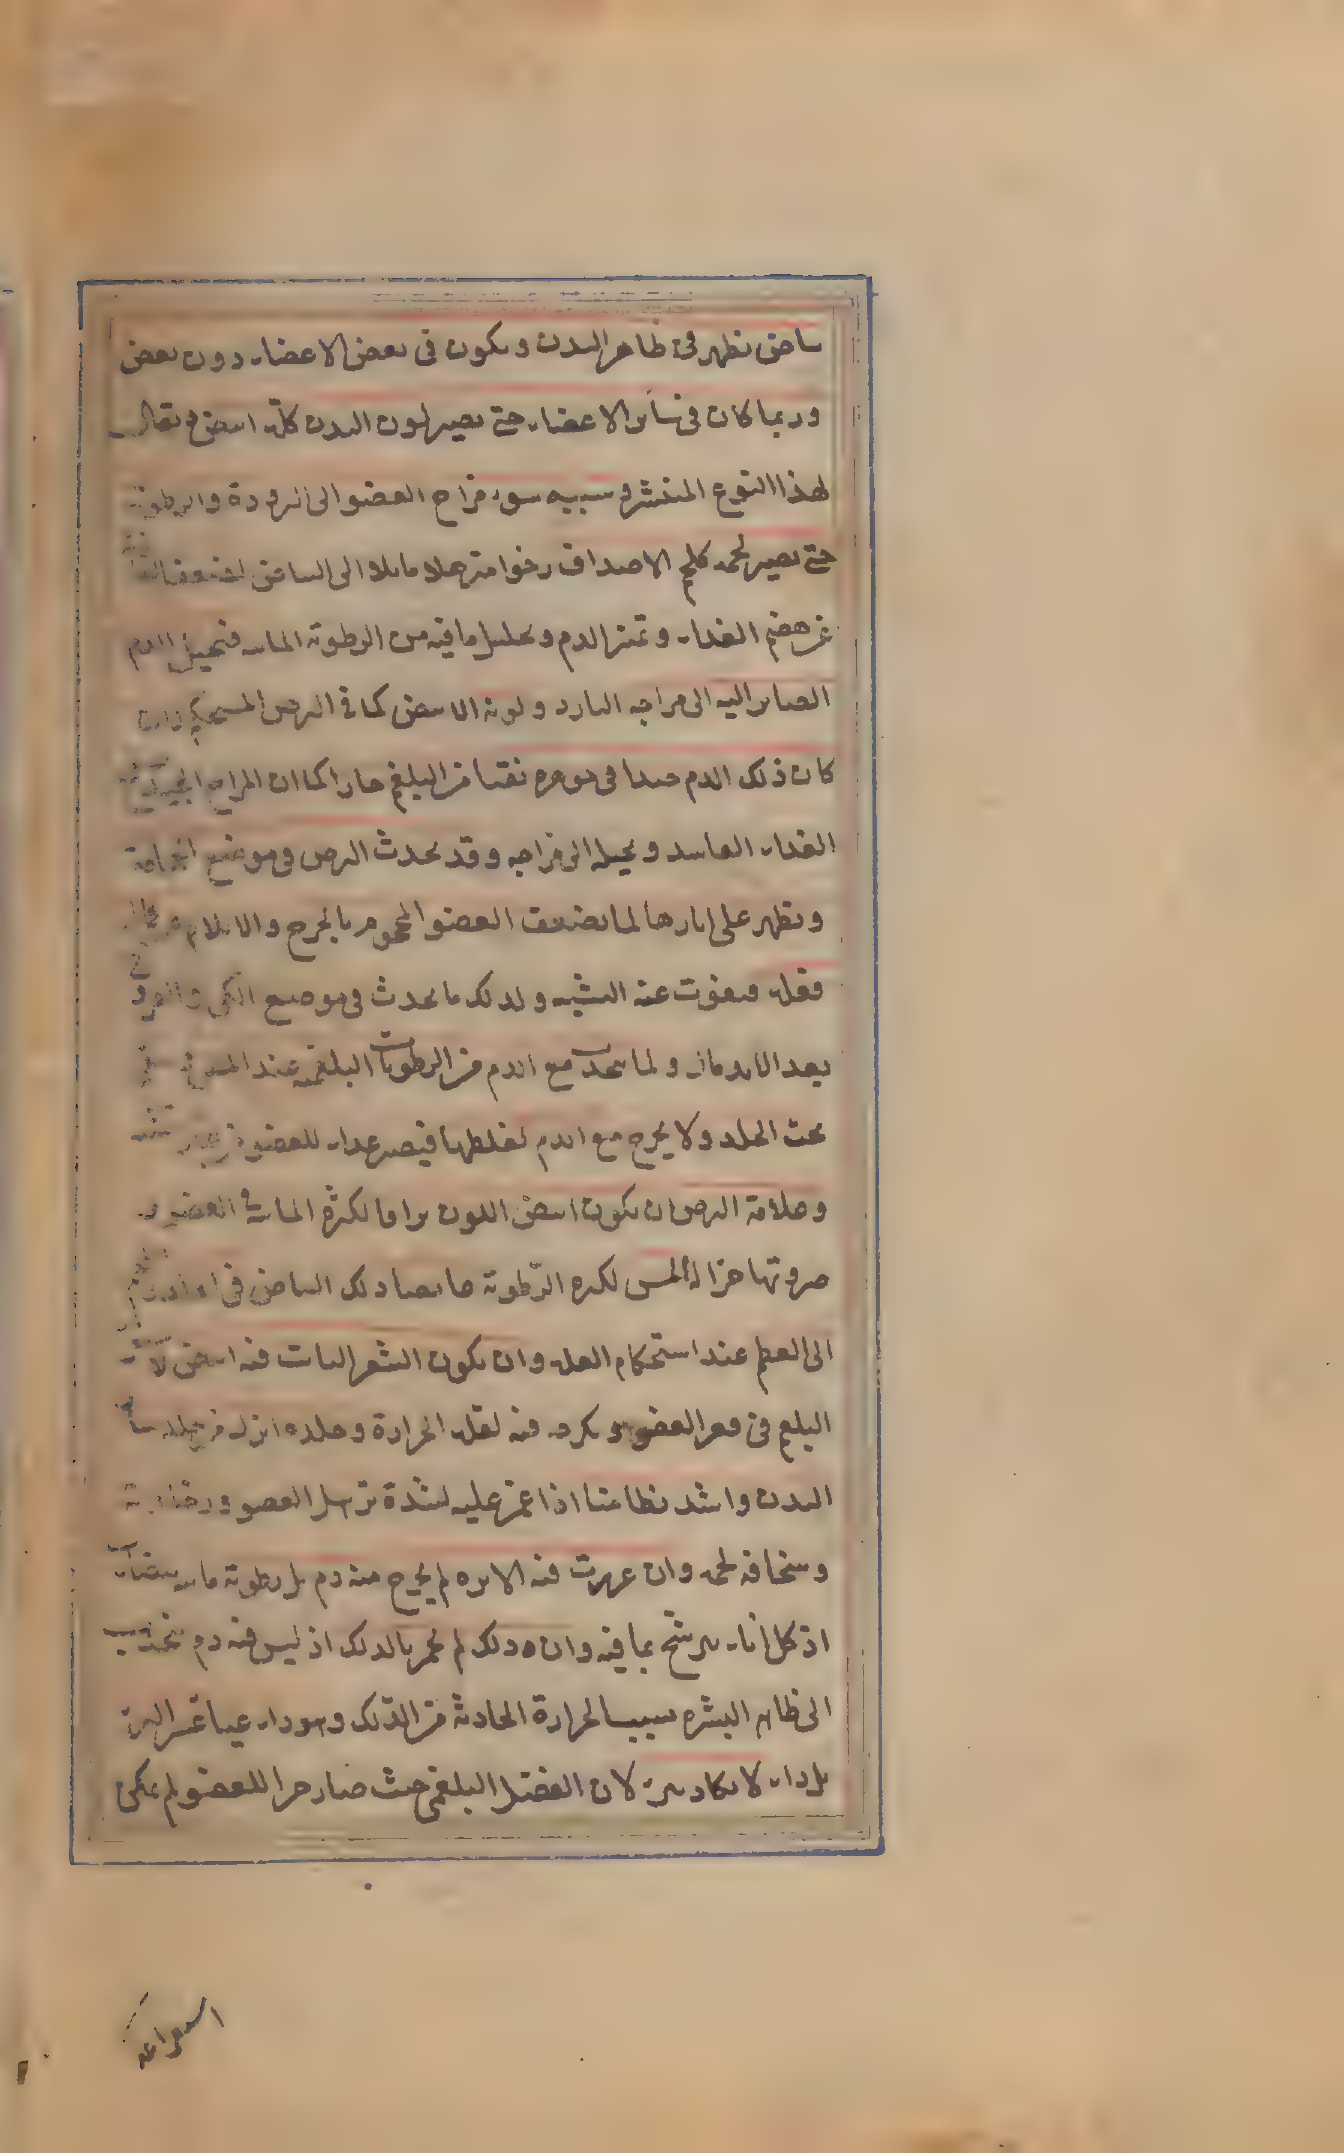 بياض يظهر في ظاهر البدن ويكون في بعض الاعضاء دون بعض
وربما كان في سائر الاعضاء حتى يصير لون البدن كله ابيض ويقال
لهذا النوع المنتشر وسببه سوء مزاج العضو الى البرودة والرطوبة
حتى يصير لحمه كلحم الاصداف رخوا مترهلا مايلا الى البياض
عن هضم الغذاء وتميز الدم وتحليل ما فيه من الرطوبة المائية فيحيل الدم
الصاير اليه الى مزاجه البارد ولونه الابيض كما في البرص المستحكم وان
كان ذلك الدم جيدا في جوهره نقيا من البلغم حارا كما ان المزاج الجيد
الغذاء الفاسد ويحيله الى مزاجه وقد يحدث البرص في موضع الحجامة
ويظهر على اثارها لما يضعف العضو المحجوم بالجرح والايلام عن
فعله فيفوت عنه الشبه ولذلك ما يحدث في موضع الكي والقروح
بعد الاندمال ولما ينجذب مع الدم من الرطوبات البلغمية عند المص
تحت الجلد ولا يخرج مع الدم لغلظها فيصير غداء للعضو
وعلامة البرص ان يكون ابيض اللون براقا لكثرة المائية في العضو و
ملس لكثرة الرطوبة غايصا ذلك البياض في
الى العظم عند استحكام العلة وان يكون الشعر النابت فيه ابيض
البلغم في قعر العضو و فيه لقلة الحرارة وجلده انزل من جلد سائر
البدن واشد تطامنا اذا غمز عليه لشدة ترهل العضو ورخاوته
وسخافة لحمه وان غرزت فيه الابرة لم يخرج منه دم بل رطوبة مائية بيضاء
اذ كل اناء يترشح بما فيه وان دلك لم يحمر بالدلك اذ ليس فيه دم ينجذب
الى ظاهر البشرة بسبب الحرارة الحادثة من الدلك وهو داء عياء عسر البرء
بل داء لا يكاد يبرء لان الفضل البلغمي حيث صار جزا للعضو لم يمكن